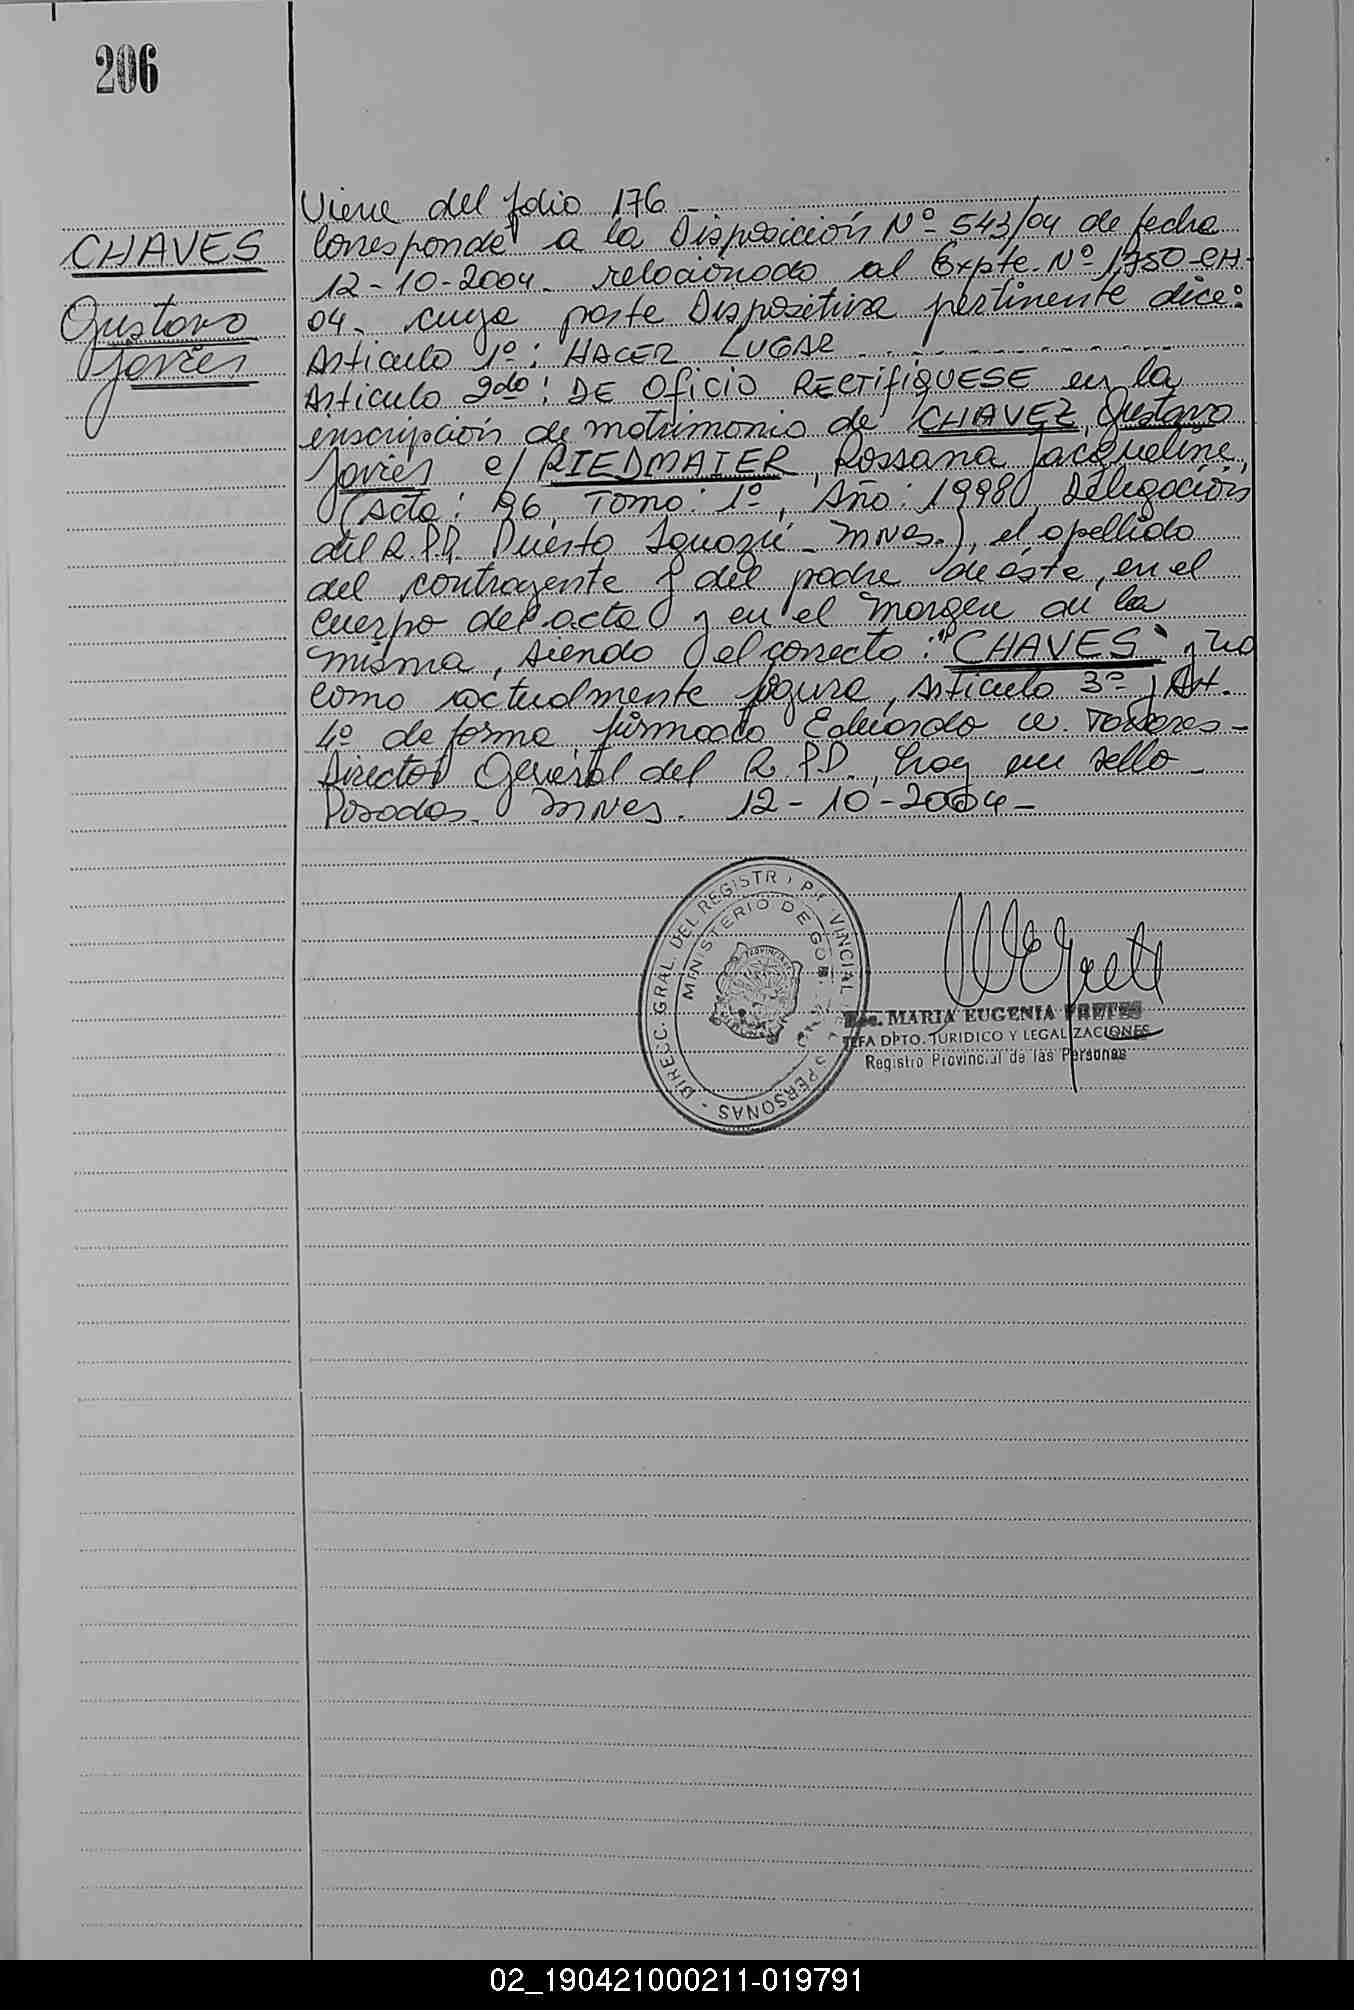 206
CHAVES
Gustavo
Javier
Viene del folio 176
Corresponde a la Disposición Nº 543/04 de fecha
12-10-2004. relacionado al Expte. Nº 1750-CH-
04. cuya parte Dispositiva pertinente dice:
Artículo 1º: HACER LUGAR
Artículo 2do: DE OFICIO RECTIFIQUESE en la
inscripción de matrimonio de CHAVEZ, Gustavo
Javier c/ RIEDMAIER, Rossana Jacqueline,
(Acta: 96, Tomo: 1º, Año: 1998, Delegación
del R.P.P. Puerto Iguazú - Mnes.), el apellido
del contrayente y del padre de éste, en el
cuerpo del acta y en el margen de la
misma, siendo el correcto: "CHAVES" y no
como actualmente figura, Artículo 3º y Art.
4º de forma, firmado Eduardo W. Torres -
Director General del R.P.P., hay un sello -
Posadas. Mnes. 12-10-2004-
DIRECC. GRAL. DEL REGISTRO PROVINCIAL PERSONAS -
MINISTERIO DE GOB.
MARIA EUGENIA FRETES
JEFA DPTO. JURIDICO Y LEGALIZACIONES
Registro Provincial de las Personas
02_190421000211-019791